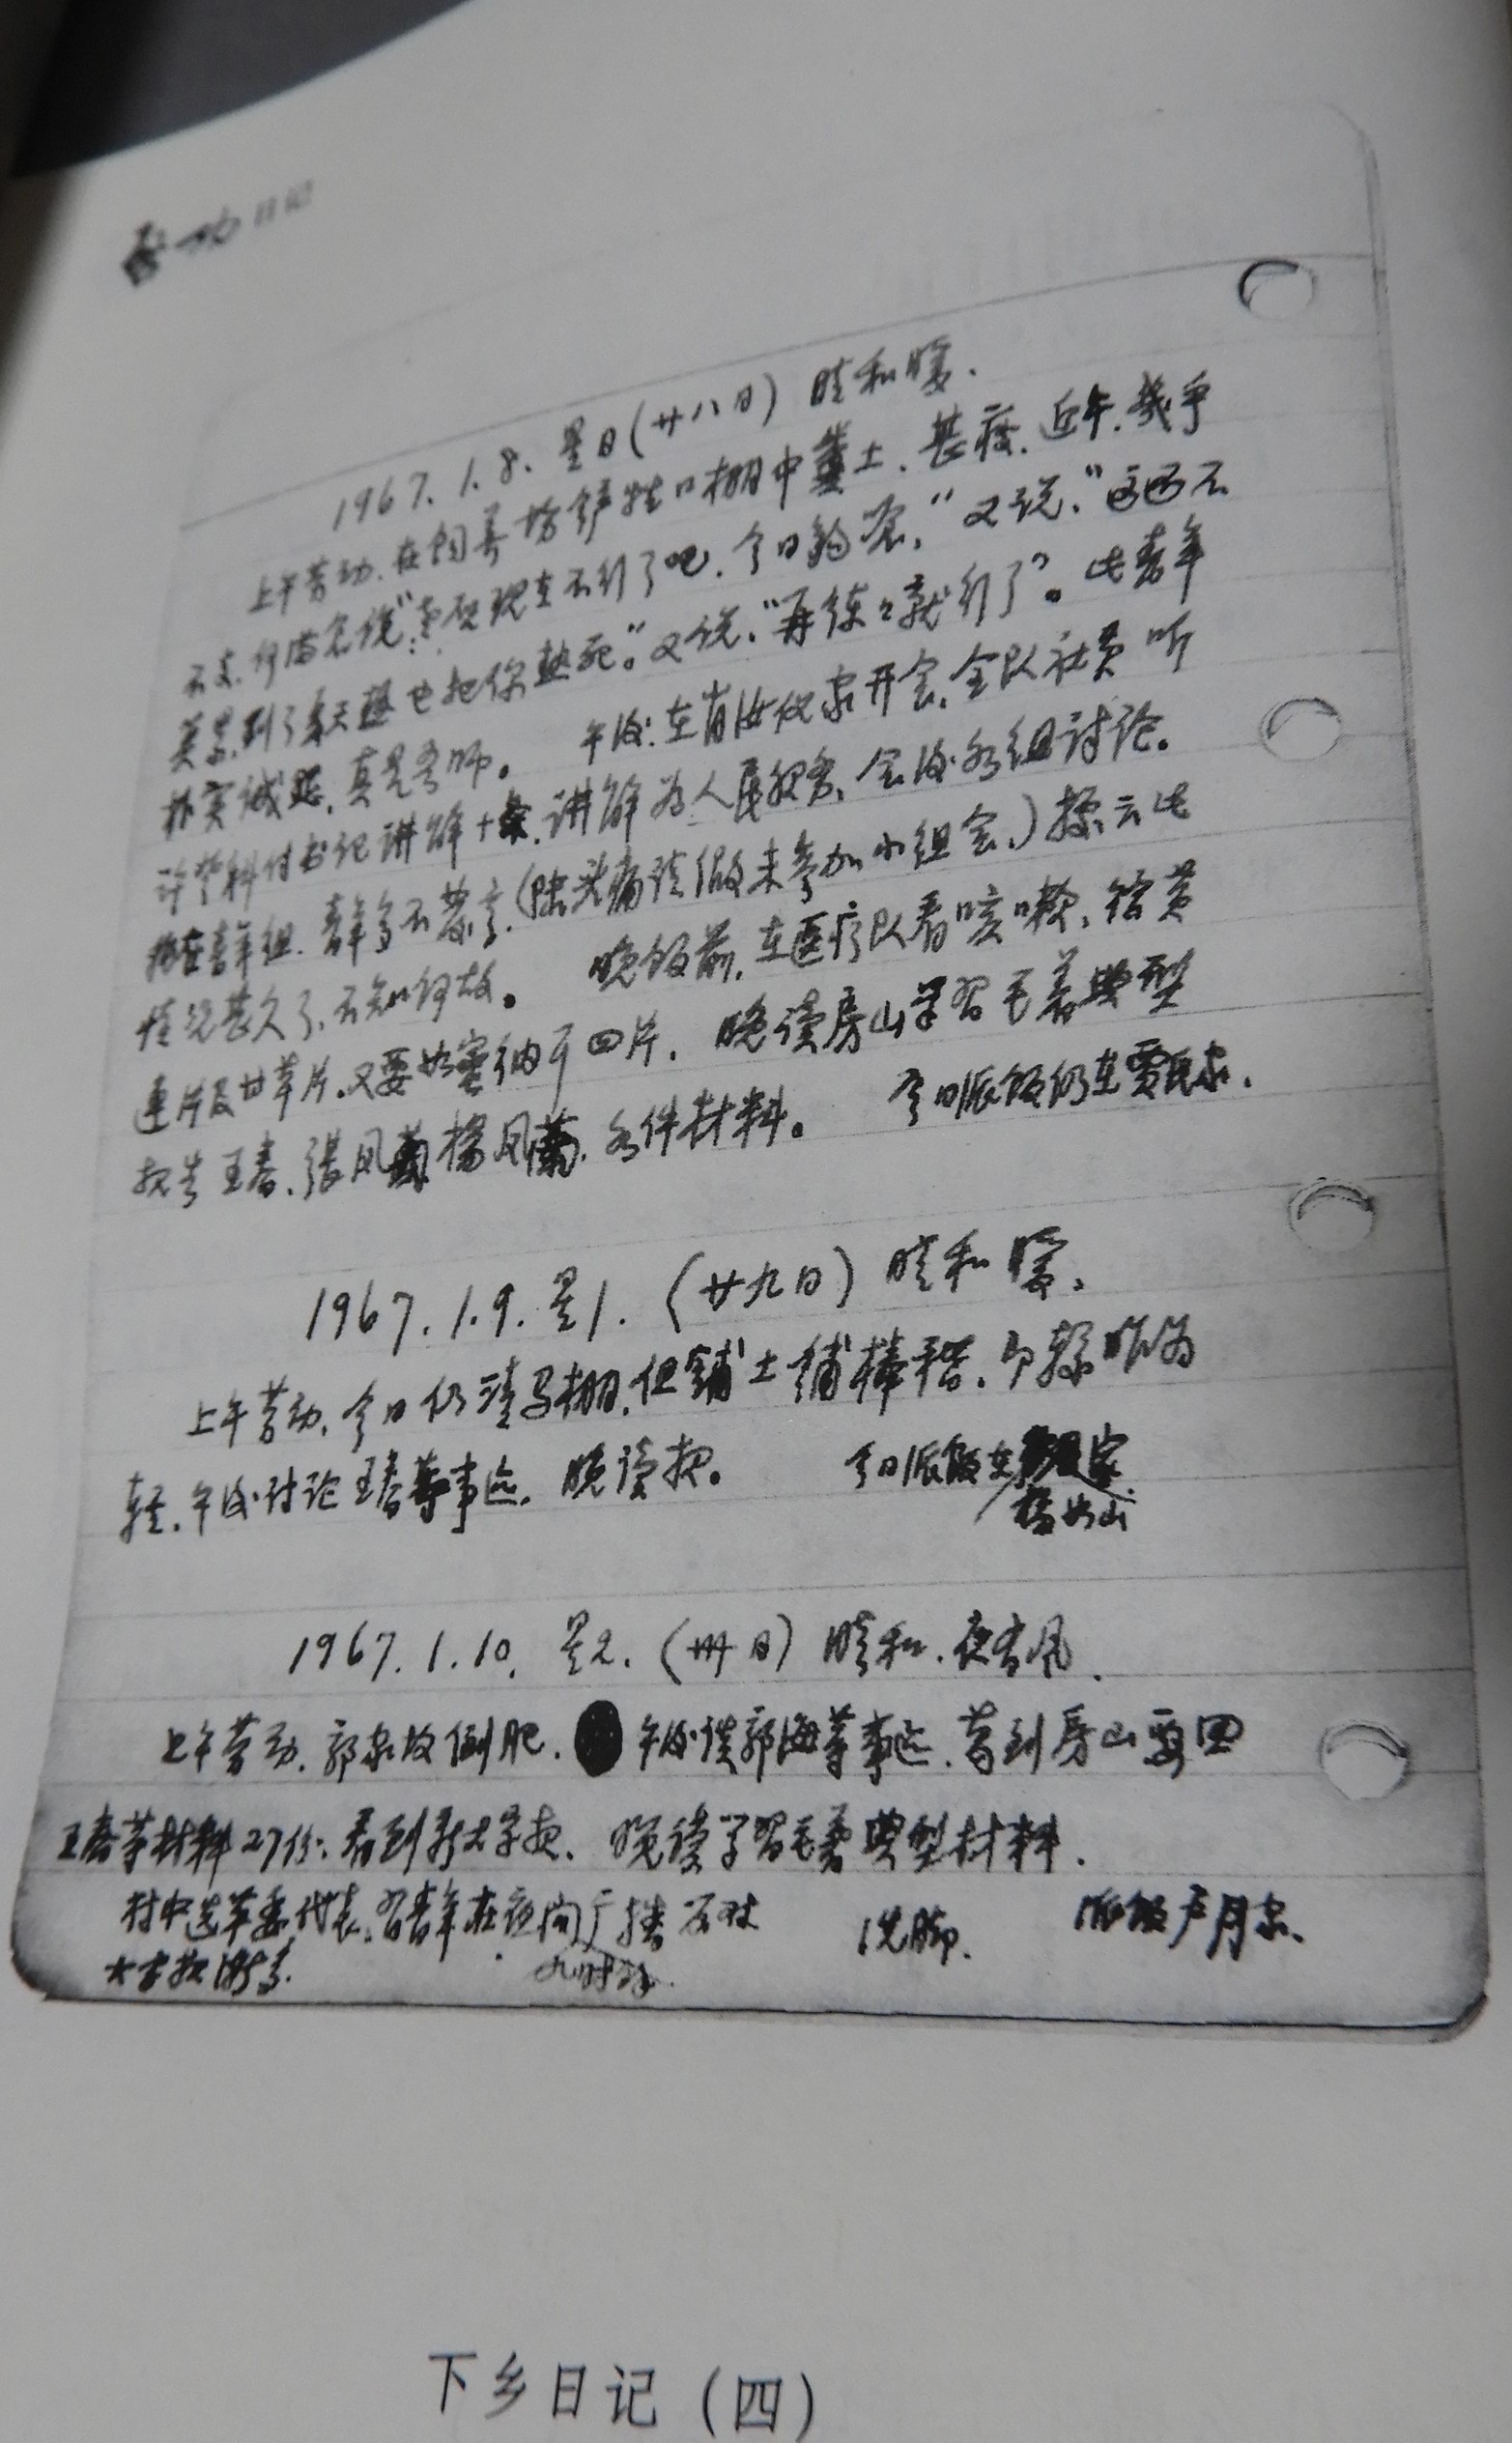 启功日记
1967.1.8.星日(廿八日) 晴和暖.
上午劳动.在饲养场铲牲口棚中粪土.甚疲.近午.几乎
不支.何
现在不行了吧.今日 ,"又说."这还不
算累.到了 天 也把你 死。"又说."再练々就行了"。此青年
朴实诚恳.真是吾师。 午后.在肖汝 家开会.全队社员听
许 科付书记讲解十条.讲解为人民服务.会后分组讨论。
我在青年组.青年多不发言.(陆头痛请假未参加小组会.)据云此
情况甚久了.不知何故。 晚饭前.在医疗队看咳嗽.给黄
连片及甘草片.又要 四片. 晚读房山学习毛著典型
报告王春.张凤 杨凤 .各件材料。 今日派饭仍在贾 家.
1967.1.9.星1.(廿九日) 晴和暖.
上午劳动.今日仍清马棚.但铺土铺棒秸.即较昨为
轻.午后讨论王春等事迹.晚读报。 今日派饭在 家.
杨 山
1967.1.10.星2.(卅日) 晴和.夜有风.
上午劳动.郭家坟倒肥. 午后谈郭海等事迹.葛到房山要回
王春等材料27份.看到 报. 晚读学习毛著典型材料.
村中选革委代表. 青年在夜间广播 洗脚. 派饭卢月家.
九时
下乡日记(四)